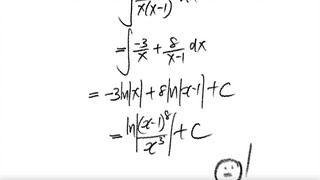 ∫ /x(x-1)
= ∫ -3/x + 8/x-1 dx
= -3ln|x| + 8ln|x-1| + C
= ln|(x-1)^8/x^3| + C